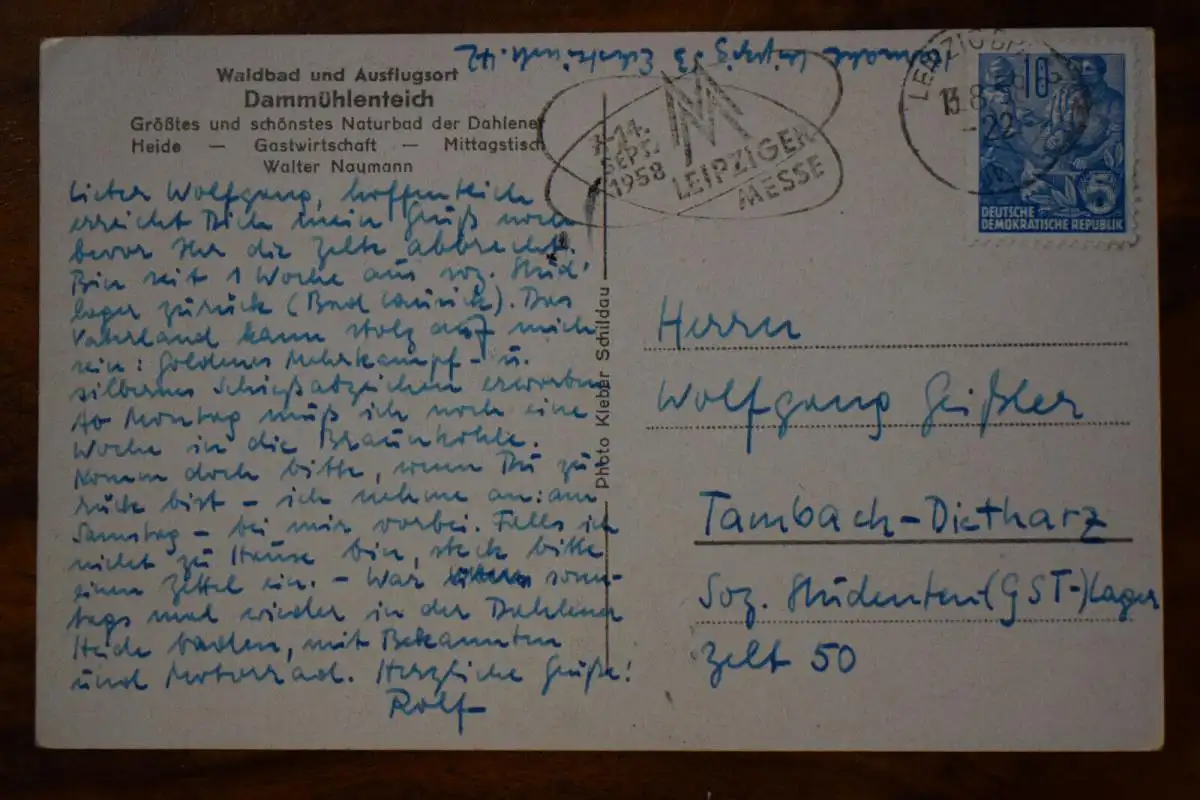 Waldbad und Ausflugsort
Dammühlenteich
Größtes und schönstes Naturbad der Dahlener
Heide — Gastwirtschaft — Mittagstisch
Walter Naumann
Lieber Wolfgang, hoffentlich
erreicht Dich mein Gruß noch
bevor Ihr die Zelte abbrecht.
Bin seit 1 Woche aus soz. Stud'
lager zurück (Bad Lausick). Das
Vaterland kann stolz auf mich
sein: Goldenes Mehrkampf- u.
silbernes Schießabzeichen erworben
Ab Montag muß ich noch eine
Woche in die Braunkohle.
Komm doch bitte, wenn Du zu
rück bist - ich nehme an: am
Samstag - bei mir vorbei. Falls ich
nicht zu Hause bin, steck bitte
einen Zettel ein. - War sonn-
tags mal wieder in der Dahlener
Heide baden, mit Bekannten
und Motorrad. Herzliche Grüße!
Rolf
Photo Kleber Schildau
Leipzig 42
-14.
SEPT.
1958
LEIPZIGER
MESSE
LEIPZIG
13.8.58
-22
10
5
DEUTSCHE
DEMOKRATISCHE REPUBLIK
Herrn
Wolfgang Geißler
Tambach-Dietharz
Soz. Studenten(GST-)Lager
Zelt 50